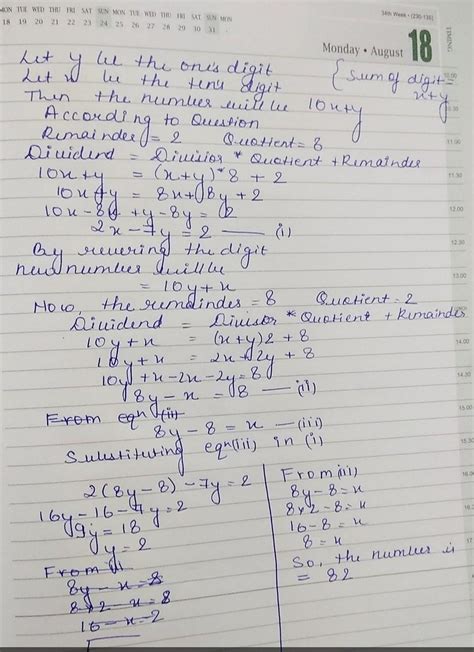 MON TUE WED THU FRI SAT SUN MON TUE WED THU FRI SAT SUN MON
18 19 20 21 22 23 24 25 26 27 28 29 30 31
34th Week • (230-135)
Monday • August 18
Let y be the one's digit
Let x be the ten's digit
{ Sum of digit =
x+y
Then the number will be 10x+y
According to Question
Remainder = 2 Quotient = 8
Dividend = Divisior * Quotient + Remainder
10x+y = (x+y)*8 + 2
10x+y = 8x+8y+2
10x-8x+y-8y=2
2x-7y=2 — (i)
By reversing the digit
new number will be
= 10y+x
Now, the remainder = 8 Quotient = 2
Dividend = Divisor * Quotient + Remainder
10y+x = (x+y)2+8
10y+x = 2x+2y+8
10y+x-2x-2y=8
8y-x = 8 — (ii)
From eqn (ii)
8y-8=x — (iii)
Substituting eqn(iii) in (i)
2(8y-8)-7y=2
16y-16-7y=2
9y=18
y=2
8y-x=8
8×2-x=8
16-x=2
From(iii)
8y-8=x
8×2-8=x
16-8=x
8=x
So, the number is
= 82
10.00
10.30
11.30
12.00
12.30
14.00
14.30
15.00
15.30